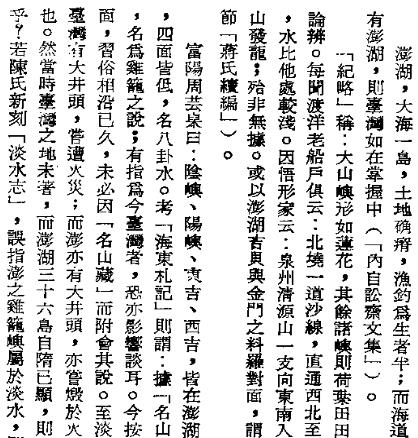 澎湖，大海一島，土地确瘠，漁釣爲生者半；而海道
有澎湖，則臺灣如在掌握中（「內自訟齋文集」）。
「紀略」稱：大山嶼形如蓮花，其餘諸嶼則荷葉田田
論辨。每聞渡洋老船戶俱云：北墝一道沙線，直通西北至
，水比他處較淺。因悟形家云：泉州清源山一支向東南入
山發龍；殆非無據。或以澎湖吉貝與金門之料羅對面，謂
節「蔣氏續編」）。
富陽周芸皋曰：陰嶼、陽嶼、東吉、西吉，皆在澎湖
，四面皆低，名八卦水。考「海東札記」則謂：據「名山
，名爲雞籠之說；有指爲今臺灣者，恐亦影響談耳。今按
面，習俗相沿已久，未必因「名山藏」而附會其說。至淡
臺灣有大井頭，嘗遭火災；而澎亦有大井頭，亦嘗燬於火
也。然當時臺灣之地未著，而澎湖三十六島自隋已顯，則
乎？若陳氏新刻「淡水志」，誤指澎之雞籠嶼屬於淡水，